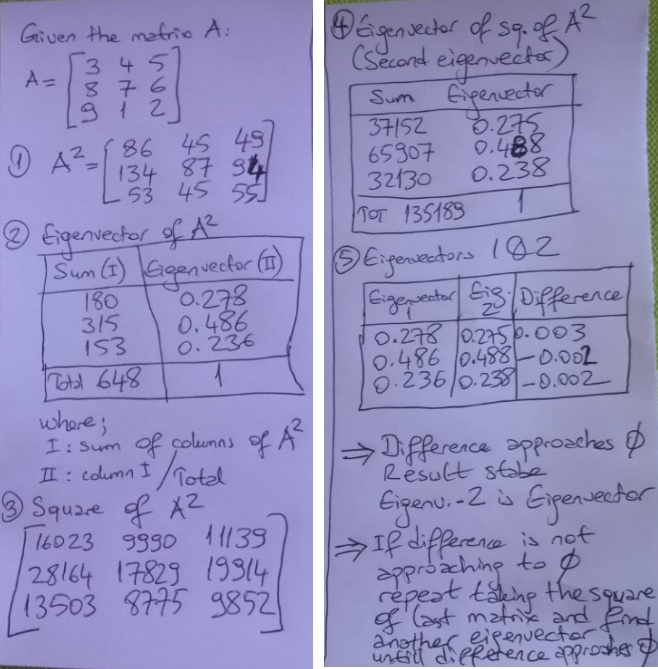 Given the matrix A:
A = [3 4 5
8 7 6
9 1 2]
① A² = [86 45 49
134 87 94
53 45 55]
② Eigenvector of A²
Sum (I) Eigenvector (II)
180 0.278
315 0.486
153 0.236
Total 648 1
where;
I : sum of columns of A²
II : column I / Total
③ Square of A²
[16023 9990 11139
28164 17829 19914
13503 8775 9852]
④ Eigenvector of sq. of A²
(Second eigenvector)
Sum Eigenvector
37152 0.275
65907 0.488
32130 0.238
TOT 135189 1
⑤ Eigenvectors 1&2
Eigenvector 1 Eig. 2 Difference
0.278 0.275 0.003
0.486 0.488 -0.002
0.236 0.238 -0.002
⇒ Difference approaches ∅
Result stabe
Eigenv.-2 is Eigenvector
⇒ If difference is not
approaching to ∅
repeat taking the square
of last matrix and find
another eigenvector
untill difference approaches ∅